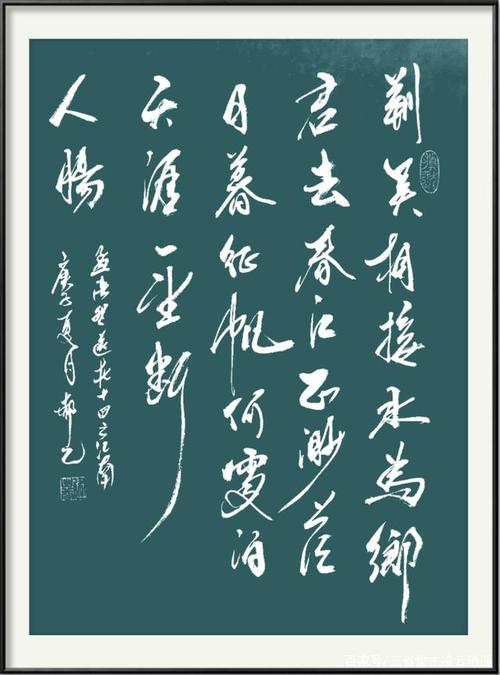 荆吴相接水為鄉
君去春江正渺茫
日暮征帆何處泊
天涯一望断
人腸
孟浩然送杜十四之江南
庚子夏月
百家号/